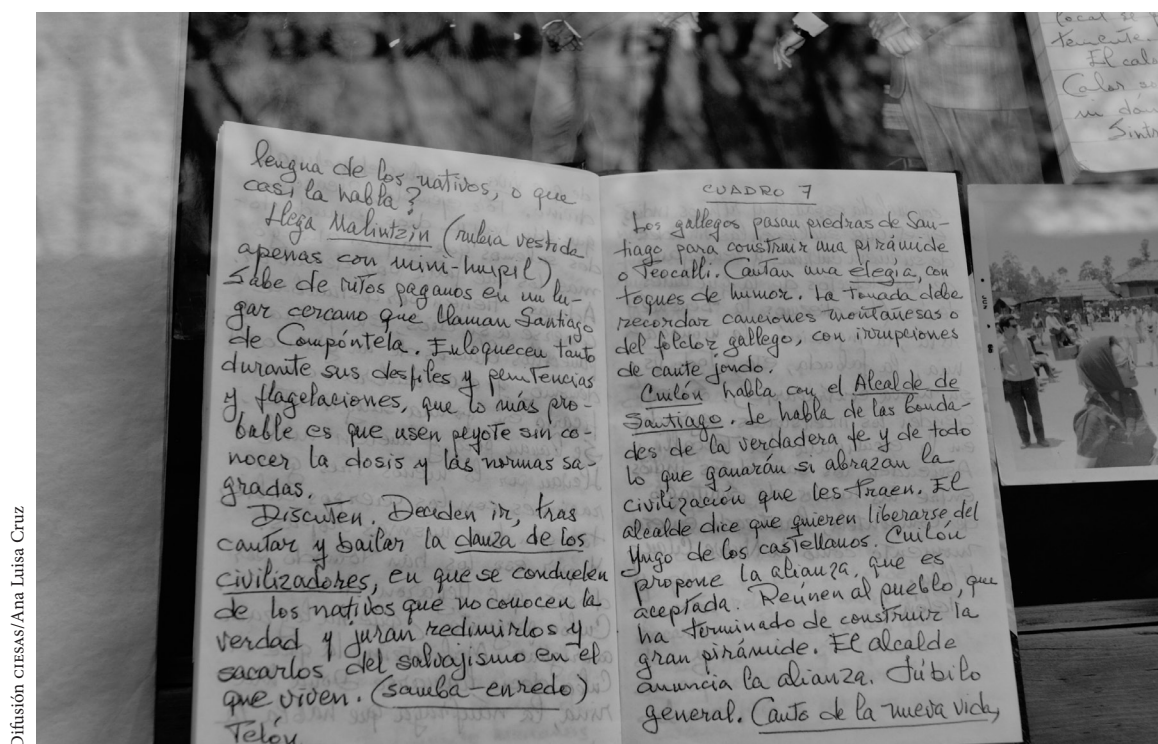 Difusión CIESAS/Ana Luisa Cruz
lengua de los nativos, o que
casi la habla?
Llega Malintzin (rubia vestida
apenas con mini-huipil).
Sabe de ritos paganos en un lu-
gar cercano que llaman Santiago
de Compóntela. Enloquecen tanto
durante sus desfiles y penitencias
y flagelaciones, que lo más pro-
bable es que usen peyote sin co-
nocer la dosis y las normas sa-
gradas.
Discuten. Deciden ir, tras
cantar y bailar la danza de los
civilizadores, en que se conduelen
de los nativos que no conocen la
verdad y juran redimirlos y
sacarlos del salvajismo en el
que viven. (samba-enredo)
Telón
CUADRO 7
Los gallegos pasan piedras de San-
tiago para construir una pirámide
o Teocalli. Cantan una elegía, con
toques de humor. La tonada debe
recordar canciones montañesas o
del folclor gallego, con irrupciones
de cante jondo.
Cuilón habla con el Alcalde de
Santiago. Le habla de las bonda-
des de la verdadera fe y de todo
lo que ganarán si abrazan la
civilización que les traen. El
alcalde dice que quieren liberarse del
yugo de los castellanos. Cuilón
propone la alianza, que es
aceptada. Reúnen al pueblo, que
ha terminado de construir la
gran pirámide. El alcalde
anuncia la alianza. Júbilo
general. Canto de la nueva vida,
local se
El calo
Calor
mi